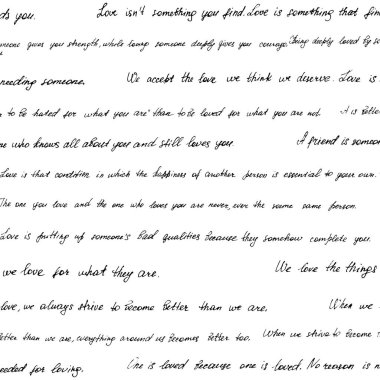 ds you. Love isn't something you find. Love is something that fin
meone gives you strength, while loving someone deeply gives you courage. Being deeply loved by so
needing someone. We accept the love we think we deserve. Love is
r to be hated for what you are than to be loved for what you are not. It is bette
ne who knows all about you and still loves you. A friend is someon
Love is that condition in which the happiness of another person is essential to your own.
The one you love and the one who loves you are never, ever the same person.
Love is putting up someone's bad qualities because they somehow complete you.
we love for what they are. We love the things
love, we always strive to become better than we are. When we
better than we are, everything around us becomes better too. When we strive to become
needed for loving. One is loved because one is loved. No reason is n